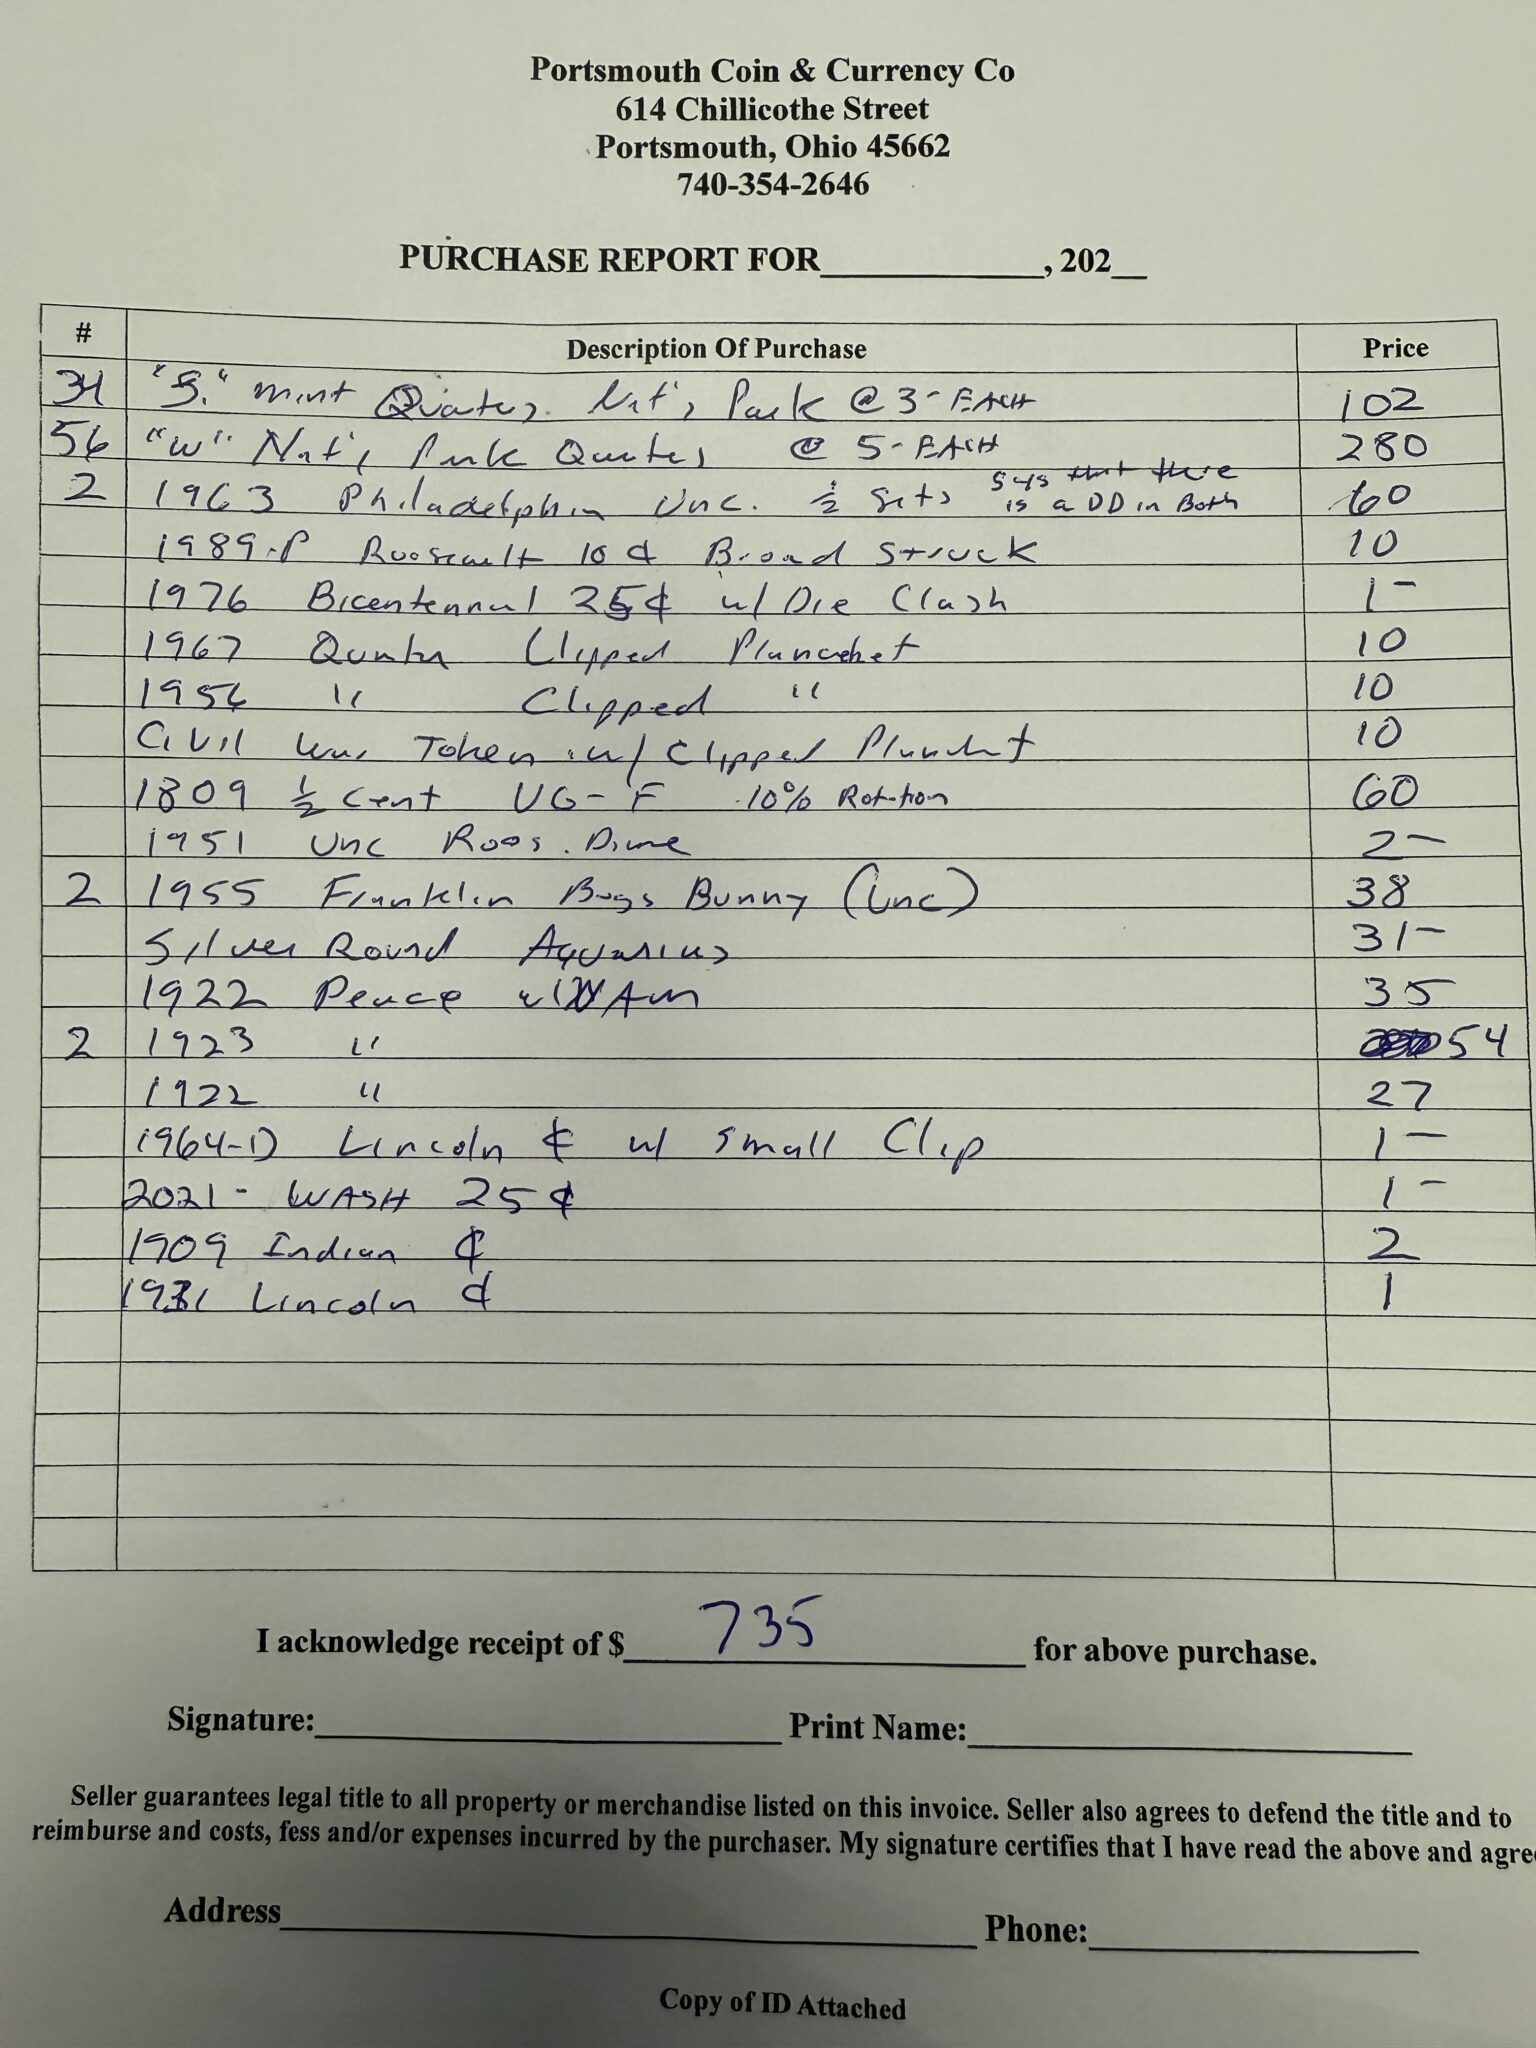 Portsmouth Coin & Currency Co
614 Chillicothe Street
Portsmouth, Ohio 45662
740-354-2646
PURCHASE REPORT FOR____________, 202__
# Description Of Purchase Price
34 "S." mint Quarters Nat'l Park @ 3- EACH 102
56 "W" Nat'l Park Quarters @ 5- EACH 280
2 1963 Philadelphia Unc. ½ Sets says that there is a DD in Both 60
1989-P Roosevelt 10¢ Broad Struck 10
1976 Bicentennial 25¢ w/ Die Clash 1-
1967 Quarter Clipped Planchet 10
1956 " Clipped " 10
Civil War Token w/ Clipped Planchet 10
1809 ½ Cent VG-F 10% Rotation 60
1951 Unc Roos. Dime 2-
2 1955 Franklin Bugs Bunny (Unc) 38
Silver Round Aquarius 31-
1922 Peace 35
2 1923 " 54
1922 " 27
1964-D Lincoln ¢ w/ Small Clip 1-
2021- WASH 25¢ 1-
1909 Indian ¢ 2
1931 Lincoln ¢ 1
I acknowledge receipt of $ 735 for above purchase.
Signature:____________ Print Name:____________
Seller guarantees legal title to all property or merchandise listed on this invoice. Seller also agrees to defend the title and to
reimburse and costs, fess and/or expenses incurred by the purchaser. My signature certifies that I have read the above and agre
Address____________ Phone:____________
Copy of ID Attached